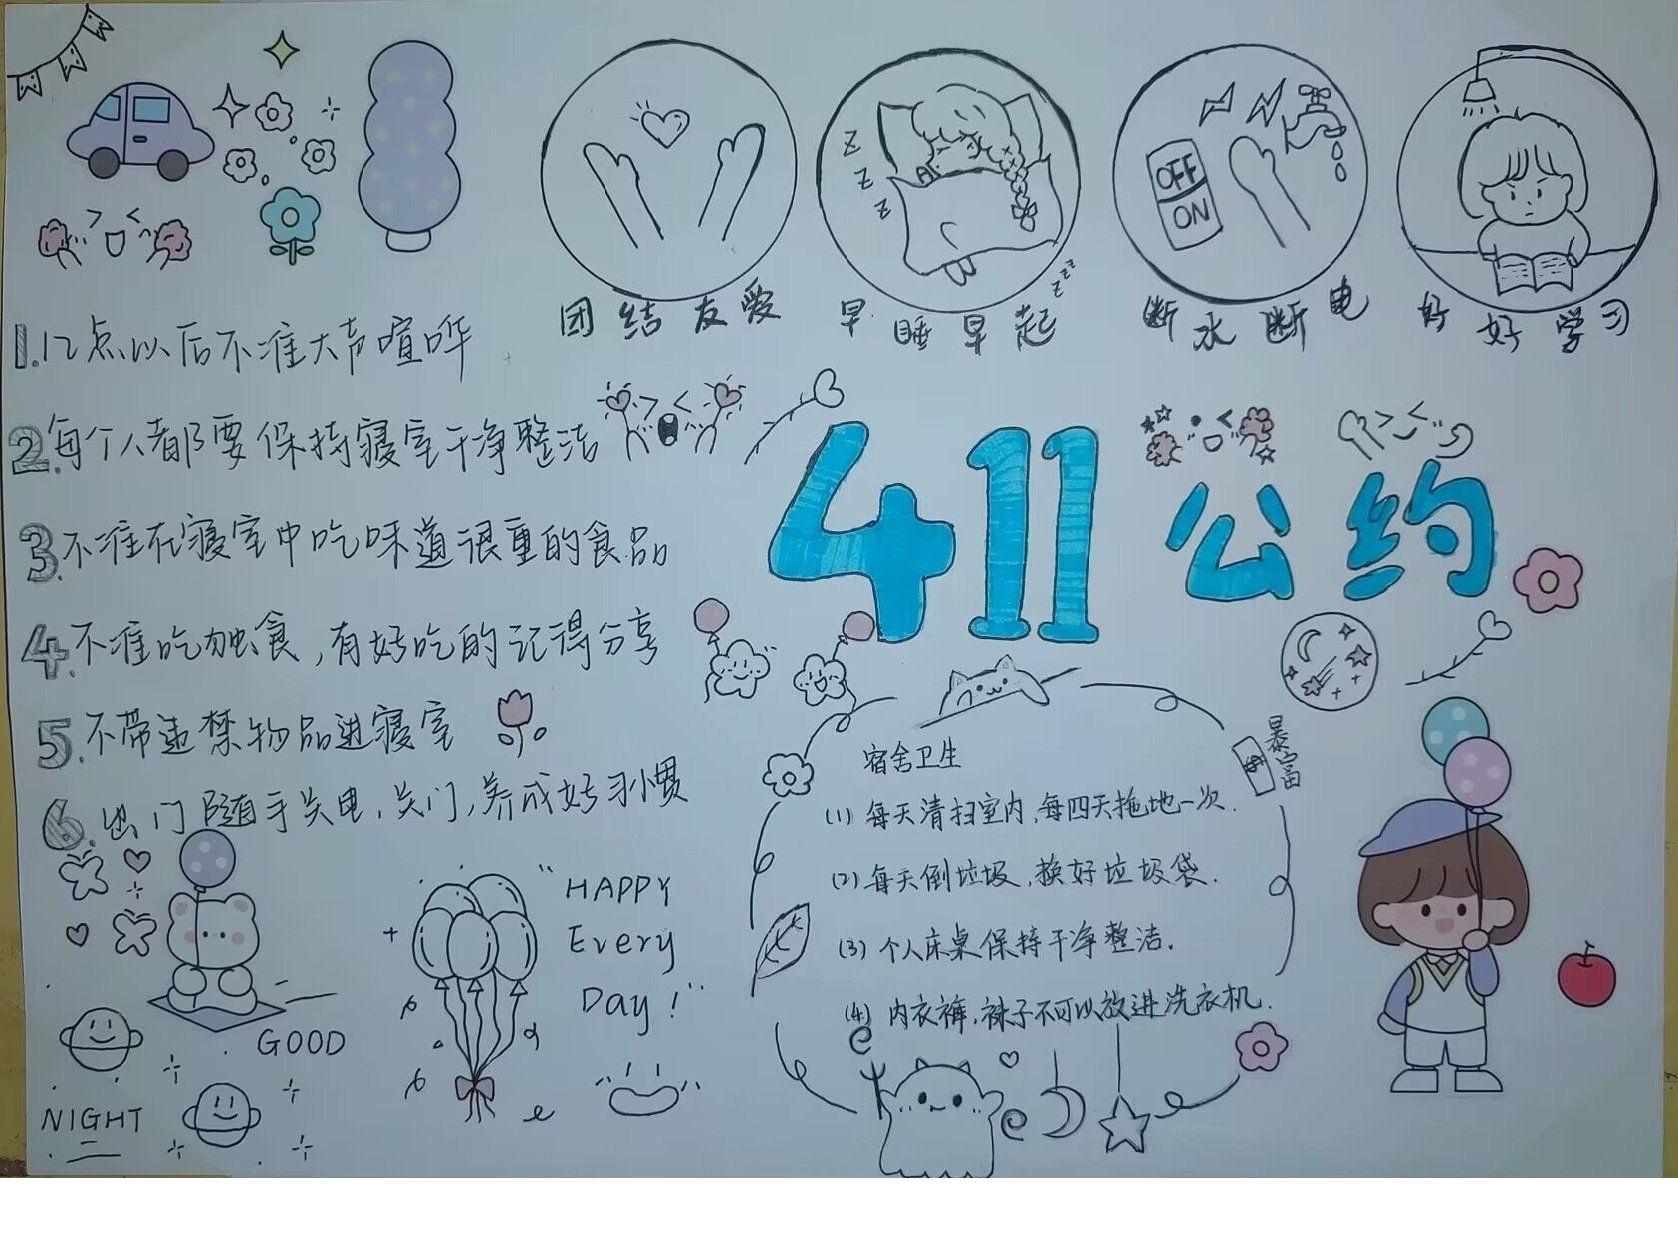 OFF
ON
Z
Z
Z
zzz
团结友爱
早睡早起
断水断电
好好学习
1.12点以后不准大声喧哗
2.每个人都要保持寝室干净整洁
3.不准在寝室中吃味道很重的食品
4.不准吃独食,有好吃的记得分享
5.不带违禁物品进寝室
6.出门随手关电,关门,养成好习惯
411公约
暴富
$
宿舍卫生
(1)每天清扫室内,每四天拖地一次.
(2)每天倒垃圾,换好垃圾袋.
(3)个人床桌保持干净整洁.
(4)内衣裤,袜子不可以放进洗衣机.
"HAPPY
Every
Day!"
GOOD
NIGHT